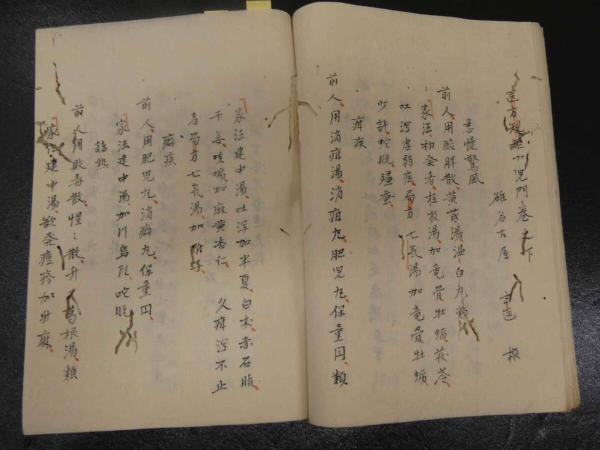 医方規矩小児門巻之下
雖名古屋 玄医 撰
急慢驚風
前人用醒脾散黄芪湯温白丸類
家法初発者桂枝湯加竜骨牡蛎茯苓
吐瀉虚弱症局方七気湯加竜骨牡蛎
少許蛇脱殭蚕
疳疾
前人用消疳湯消疳丸肥児丸保童円類
家法建中湯吐瀉加半夏白朮赤石脂
干姜咳喘加麻黄杏仁 久痢瀉不止
者局方七気湯加
癖疾
前人用肥児丸消癖丸保童円
家法建中湯加川烏頭蛇脱
諸熱
前人用敗毒散惺々散升 葛根湯類
家法建中湯欲発痘疹加升麻